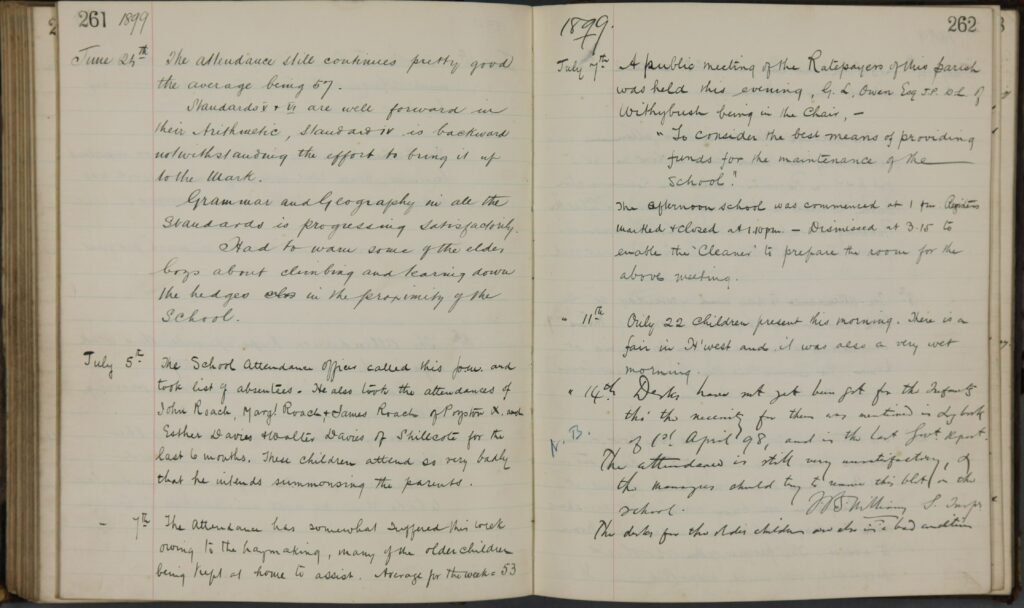 261 1899
June 26th The attendance still continues pretty good
the average being 57.
Standards V + VI are well forward in
their Arithmetic, Standard IV is backward
notwithstanding the effort to bring it up
to the Mark.
Grammar and Geography in all the
Standards is progressing satisfactorily.
Had to warn some of the elder
boys about climbing and tearing down
the hedges in the proximity of the
School.
July 5th The School Attendance Officer called this and
took list of absentees. He also took the attendances of
John Roach, Margt Roach & James Roach of Poyston X, and
Esther Davies & Walter Davies of Shillcote for the
last 6 months. These children attend so very badly
that he intends summonsing the parents.
– 7th The Attendance has somewhat suffered this week
owing to the haymaking, many of the older children
being kept at home to assist. Average for the week = 53
1899.
262
July 7th A public meeting of the Ratepayers of this parish
was held this evening, G. L. Owen Esq J.P. D.L. of
Withybush being in the Chair, –
"To consider the best means of providing
funds for the maintenance of the
School".
The afternoon school was commenced at 1 pm Registers
marked & closed at 1.10 pm. – Dismissed at 3.15 to
enable the 'Cleaner' to prepare the room for the
above meeting.
" 11th Only 22 children present this morning. There is a
fair in H'west and it was also a very wet
morning.
" 14th Desks have not yet been got for the Infants
tho' the necessity for them was mentioned in Log book
N.B. of 1st April 98, and in the last Govt Report.
The attendance is still very unsatisfactory, &
the managers should try to remove this blot on the
school. Williams S. Inspr
The desks for the older children are also in a bad condition